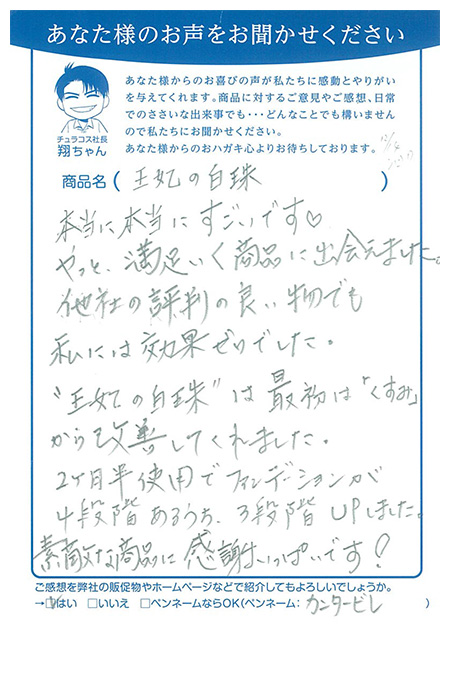 あなた様のお声をお聞かせください
あなた様からのお喜びの声が私たちに感動とやりがい
を与えてくれます。商品に対するご意見やご感想、日常
でのささいな出来事でも・・・どんなことでも構いません
ので私たちにお聞かせください。
あなた様からのおハガキ心よりお待ちしております。
チュラコス社長
翔ちゃん
商品名( 王妃の白珠 )
本当に本当にすごいです♡
やっと、満足いく商品に出会えました。
他社の評判の良い物でも
私には効果ゼロでした。
"王妃の白珠"は最初は「くすみ」
から改善してくれました。
2ヶ月半使用でファンデーションが
4段階あるうち、3段階UPしました。
素敵な商品に感謝いっぱいです!
ご感想を弊社の販促物やホームページなどで紹介してもよろしいでしょうか。
→☑はい □いいえ □ペンネームならOK(ペンネーム: カンタービレ )